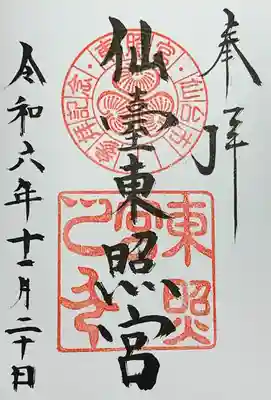 奉拝
仙臺東照宮
令和六年十二月二十日
東照